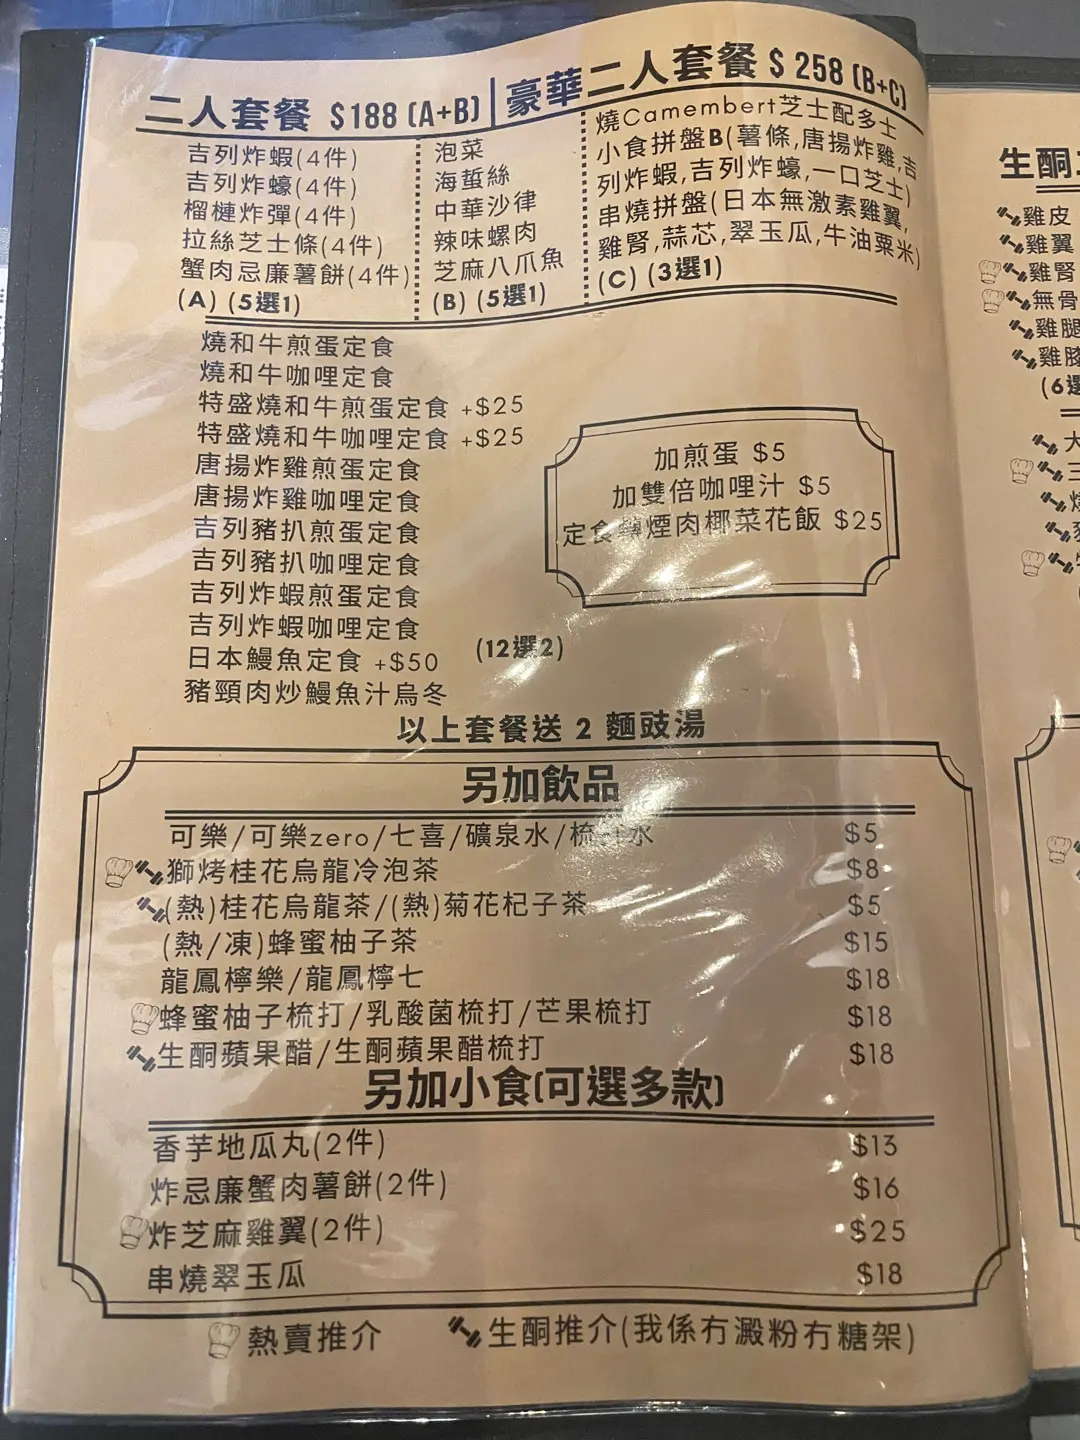 二人套餐 $188 (A+B)
吉列炸蝦(4件)
吉列炸蠔(4件)
榴槤炸彈(4件)
拉絲芝士條(4件)
蟹肉忌廉薯餅(4件)
(A) (5選1)
泡菜
海蜇絲
中華沙律
辣味螺肉
芝麻八爪魚
(B) (5選1)
豪華二人套餐 $ 258 (B+C)
燒Camembert芝士配多士
小食拼盤B(薯條,唐揚炸雞,吉
列炸蝦,吉列炸蠔,一口芝士)
串燒拼盤(日本無激素雞翼,
雞腎,蒜芯,翠玉瓜,牛油粟米)
(C) (3選1)
燒和牛煎蛋定食
燒和牛咖哩定食
特盛燒和牛煎蛋定食 +$25
特盛燒和牛咖哩定食 +$25
唐揚炸雞煎蛋定食
唐揚炸雞咖哩定食
吉列豬扒煎蛋定食
吉列豬扒咖哩定食
吉列炸蝦煎蛋定食
吉列炸蝦咖哩定食
日本鰻魚定食 +$50
豬頸肉炒鰻魚汁烏冬
(12選2)
加煎蛋 $5
加雙倍咖哩汁 $5
定食轉煙肉椰菜花飯 $25
以上套餐送 2 麵豉湯
另加飲品
可樂/可樂zero/七喜/礦泉水/梳打水 $5
獅烤桂花烏龍冷泡茶 $8
(熱)桂花烏龍茶/(熱)菊花杞子茶 $5
(熱/凍)蜂蜜柚子茶 $15
龍鳳檸樂/龍鳳檸七 $18
蜂蜜柚子梳打/乳酸菌梳打/芒果梳打 $18
生酮蘋果醋/生酮蘋果醋梳打 $18
另加小食(可選多款)
香芋地瓜丸(2件) $13
炸忌廉蟹肉薯餅(2件) $16
炸芝麻雞翼(2件) $25
串燒翠玉瓜 $18
熱賣推介
生酮推介(我係冇澱粉冇糖架)
生酮
雞皮
雞翼
雞腎
無骨
雞腿
雞膝
(6選
大
三